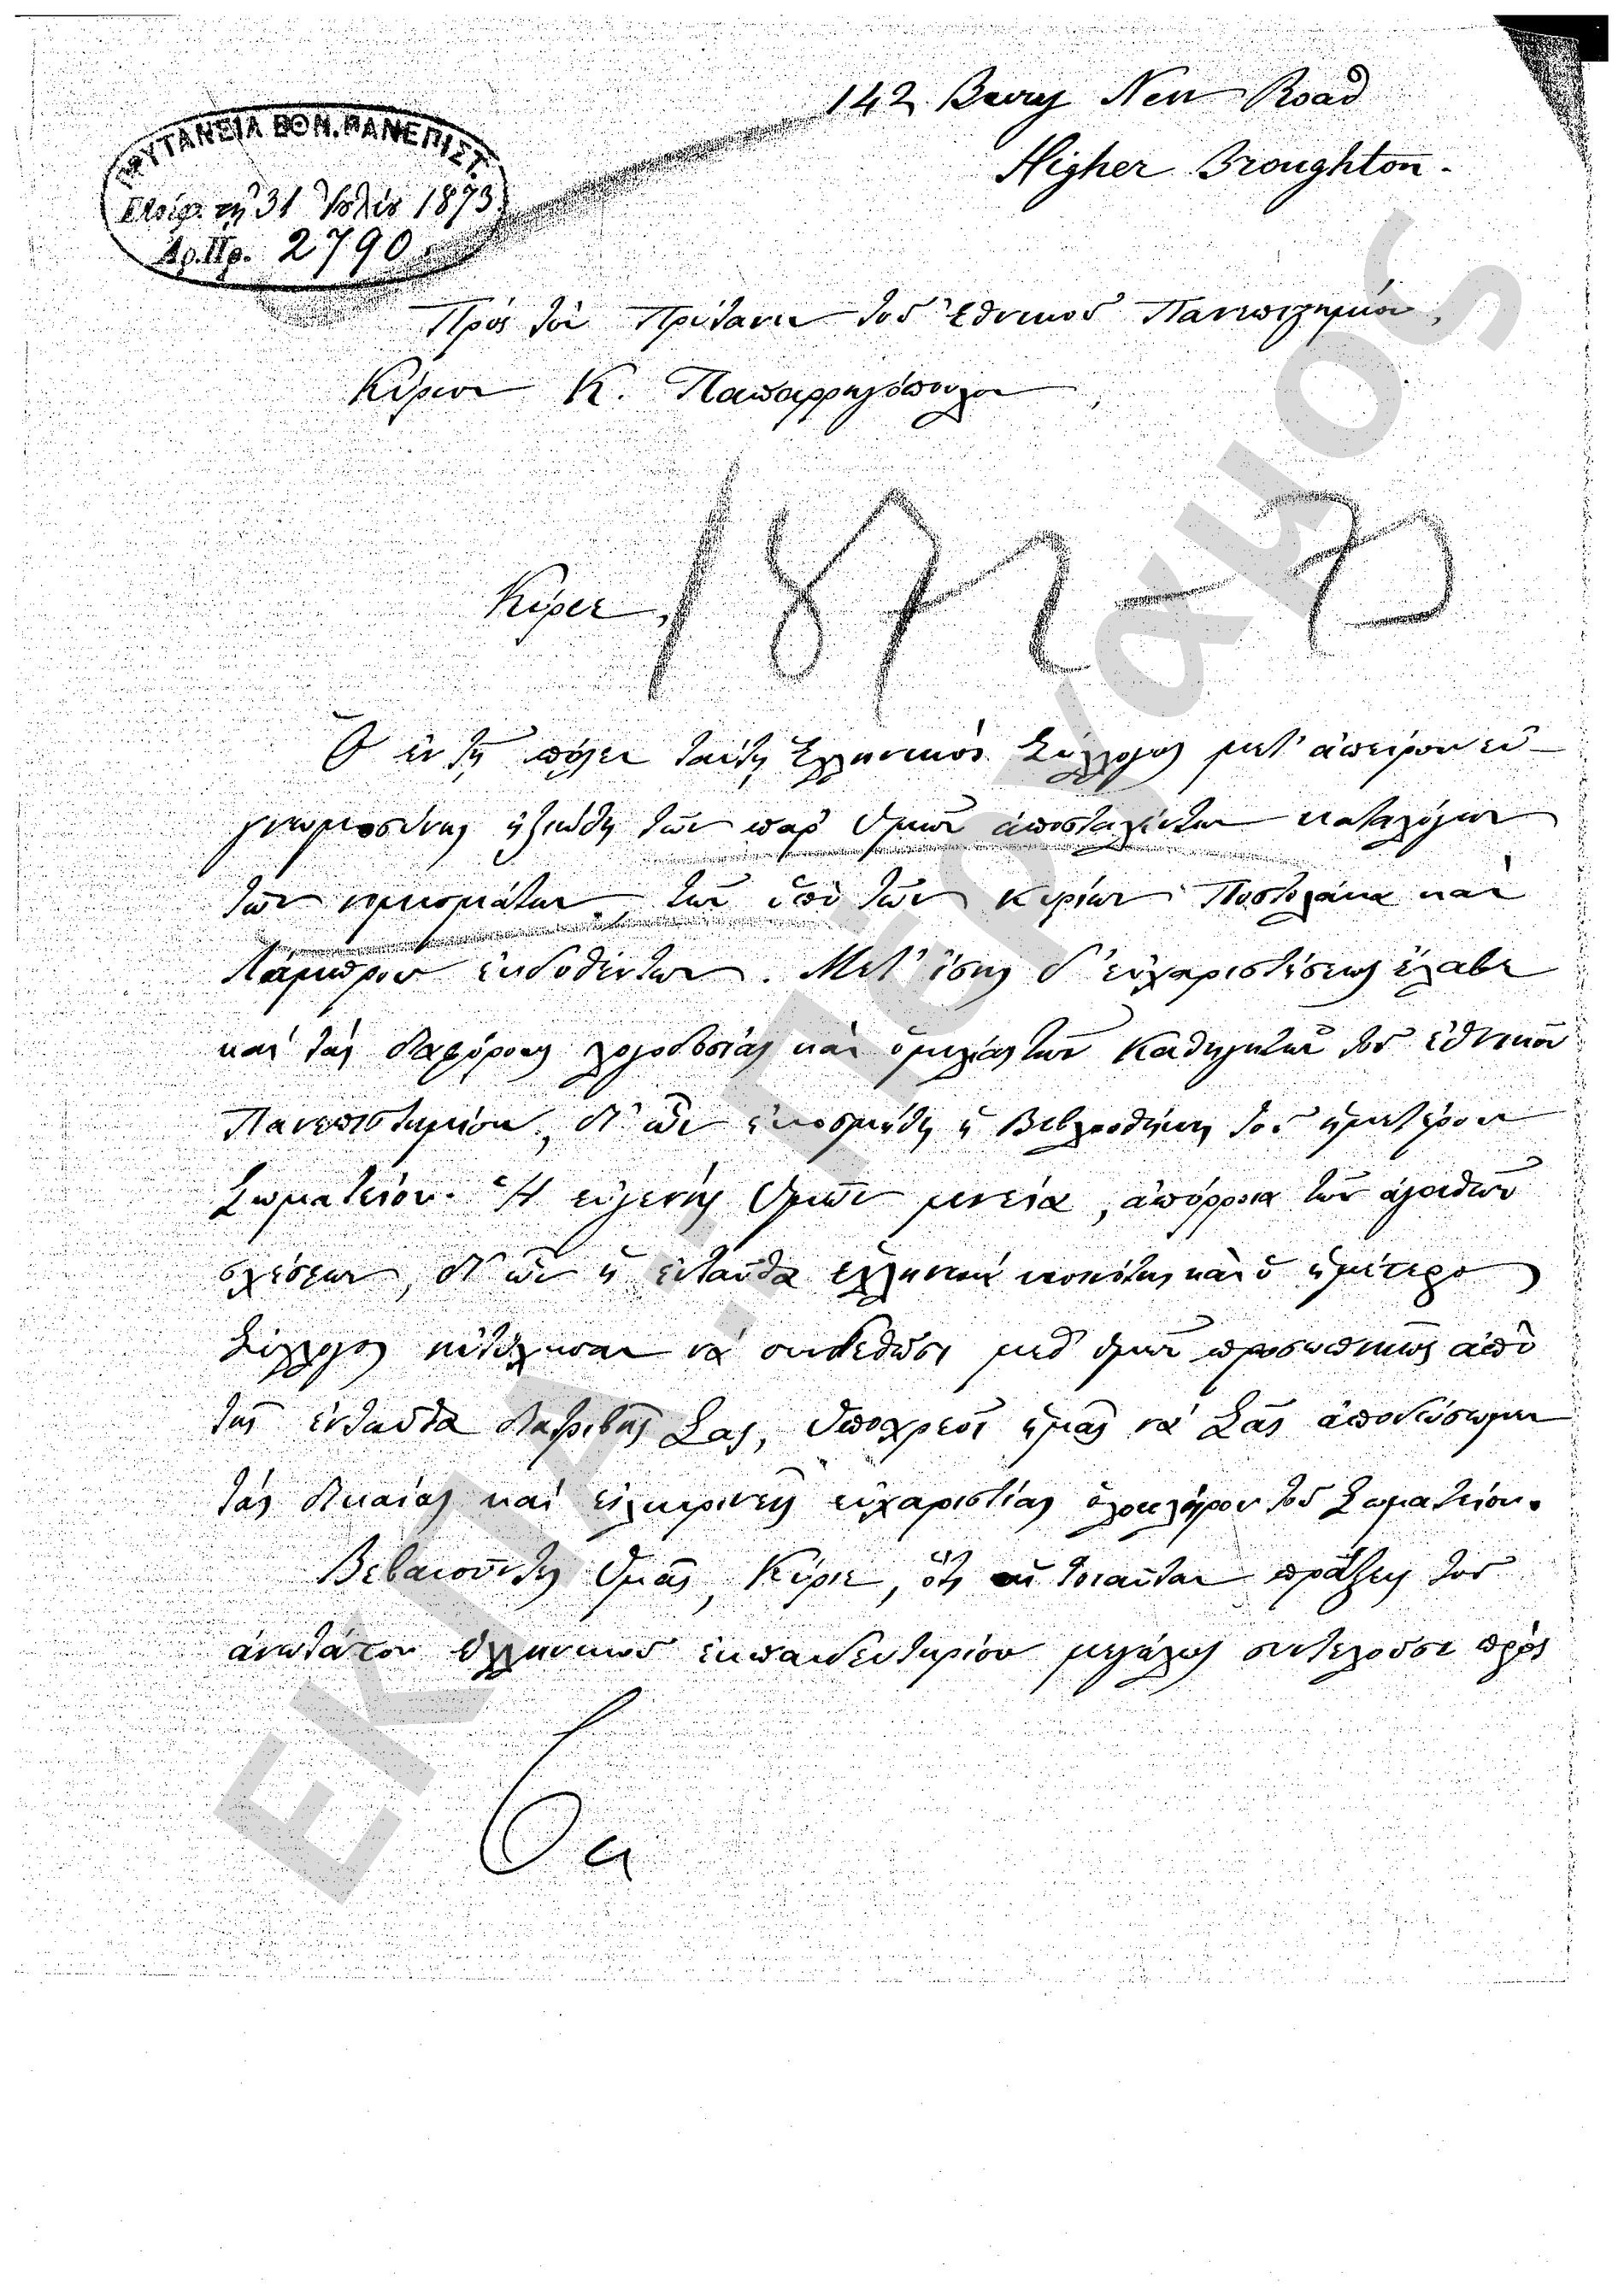 142 Bury New Road
Higher Broughton.
ΠΡΥΤΑΝΕΙΑ ΕΘΝ. ΠΑΝΕΠΙΣΤ.
τῇ 31 Ἰουλίου 1873
Ἀρ. Πρ. 2790
Πρὸς τὸν Πρύτανιν τοῦ Ἐθνικοῦ Πανεπιστημίου,
Κύριον Κ. Παπαρρηγόπουλον,
1872-73
Κύριε,
Ὁ ἐν τῇ πόλει ταύτῃ Ἑλληνικὸς Σύλλογος μετ' ἀπείρου εὐ-
γνωμοσύνης ἠξιώθη τῶν παρ' Ὑμῶν ἀποσταλέντων καταλόγων
τῶν νομισμάτων, τῶν ὑπὸ τῶν κυρίων Ποστολάκα καὶ
Λάμπρου ἐκδοθέντων. Μετ' ἴσης δ' εὐχαριστήσεως ἔλαβε
καὶ τὰς διαφόρους λογοδοσίας καὶ ὁμιλίας τῶν Καθηγητῶν τοῦ ἐθνικοῦ
Πανεπιστημίου, δι' ὧν ἐκοσμήθη ἡ Βιβλιοθήκη τοῦ ἡμετέρου
Σωματείου. Ἡ εὐγενὴς Ὑμῶν μνεία, ἀπόρροια τῶν ἀγαθῶν
σχέσεων, δι' ὧν ἡ ἐνταῦθα ἑλληνικὴ νεότης καὶ ὁ ἡμέτερος
Σύλλογος ηὐτύχησαν νὰ συνδεθῶσι μεθ' ὑμῶν προσωπικῶς ἀπὸ
τῆς ἐνταῦθα διατριβῆς Σας, Ὑποχρεοῖ ἡμᾶς νὰ Σᾶς ἀποδώσωμεν
τὰς δικαίας καὶ εἰλικρινεῖς εὐχαριστίας ὁλοκλήρου τοῦ Σωματείου.
Βεβαιοῦντες Ὑμᾶς, Κύριε, ὅτι αἱ τοιαῦται πράξεις τοῦ
ἀνωτάτου ἑλληνικοῦ ἐκπαιδευτηρίου μεγάλως συντελοῦσι πρὸς